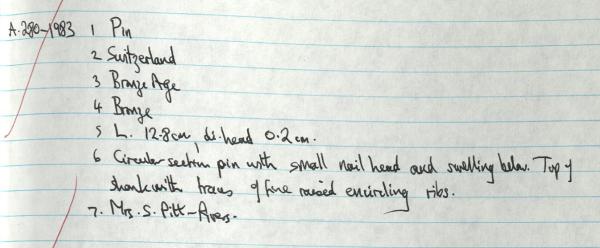 A.280-1983 1 Pin
2 Switzerland
3 Bronze Age
4 Bronze
5 L. 12.8cm, di. head 0.2cm.
6 Circular section pin with small nail head and swelling below. Top of
shank with traces of fine raised encircling ribs.
7. Mrs. S. Pitt-Rivers.